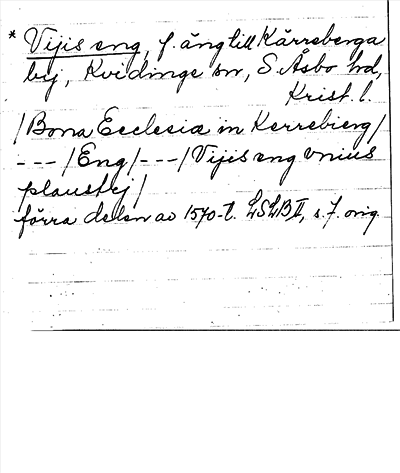 * Vijis eng, f. äng till Kärreberga
by, Kvidinge sn, S. Åsbo hd,
Krist. l.
/Bona Ecclesiæ in Kerrebierg/
---/Eng/---/Vijis eng vnius
plaustrj/
förra delen av 1570-t. LSLB II, s. 7. orig.